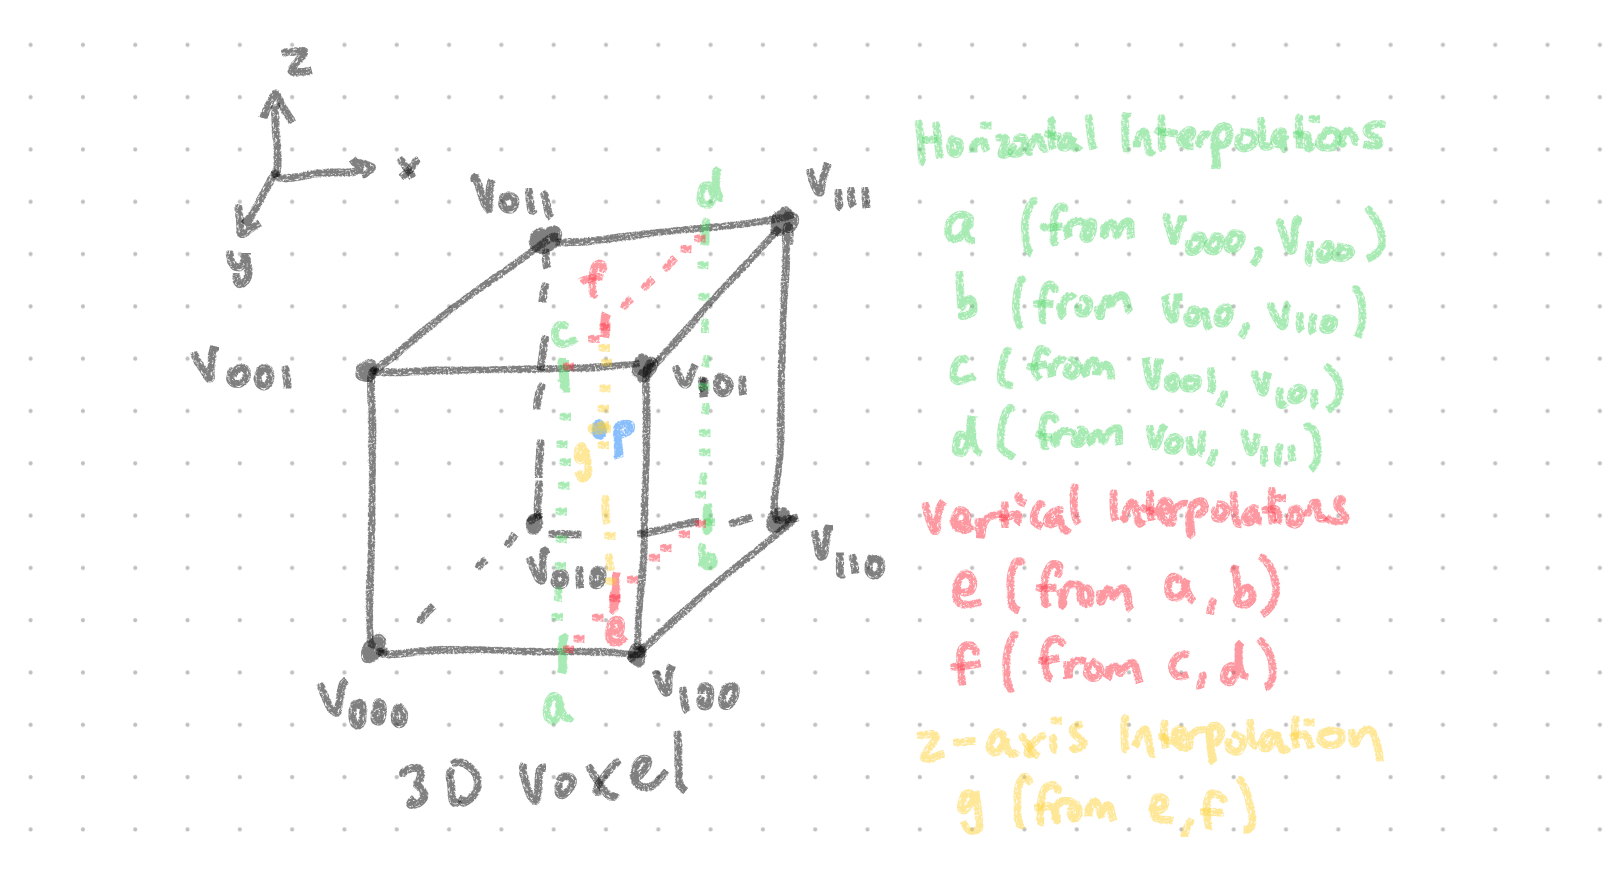 z
x
y
V011
V111
d
f
c
V001
V101
p
g
V010
b
V110
e
V000
V100
a
3D Voxel
Horizontal Interpolations
a (from V000, V100)
b (from V010, V110)
c (from V001, V101)
d (from V011, V111)
Vertical Interpolations
e (from a, b)
f (from c, d)
z-axis Interpolation
g (from e, f)